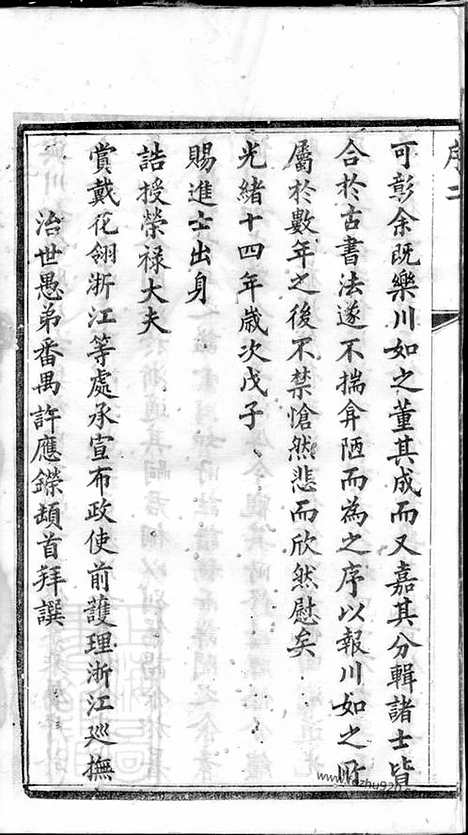 序二
可彰余既樂川如之董其成而又嘉其分輯諸士皆
合於古書法遂不揣弇陋而為之序以報川如之所
屬於數年之後不禁愴然悲而欣然慰矣
光緒十四年歲次戊子
賜進士出身
誥授榮禄大夫
賞戴花翎浙江等處承宣布政使前護理浙江巡撫
治世愚弟番禺許應鑅頓首拜譔